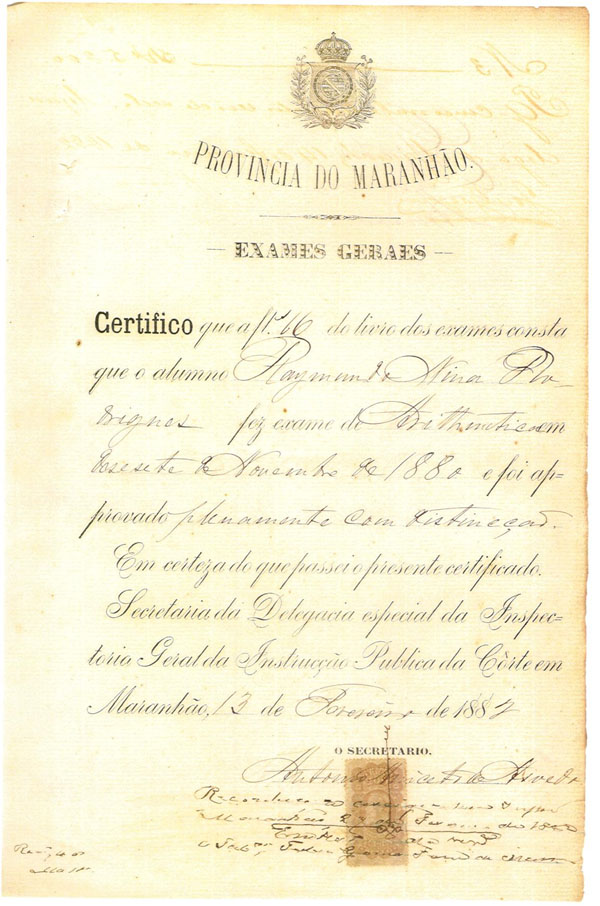 PROVINCIA DO MARANHÃO.
EXAMES GERAES
Certifico que a fl. 66 do livro dos exames consta
que o alumno Raymundo Nina Ro-
drigues fez exame de Arithmetica em
desesete de Novembro de 1880 e foi ap-
provado plenamente com distincção.
Em certeza do que passei o presente certificado.
Secretaria da Delegacia especial da Inspec-
toria Geral da Instrucção Publica da Côrte em
Maranhão, 13 de Fevereiro de 1882
O SECRETARIO.
Antonio de Asevedo
Reconheço
Maranhão